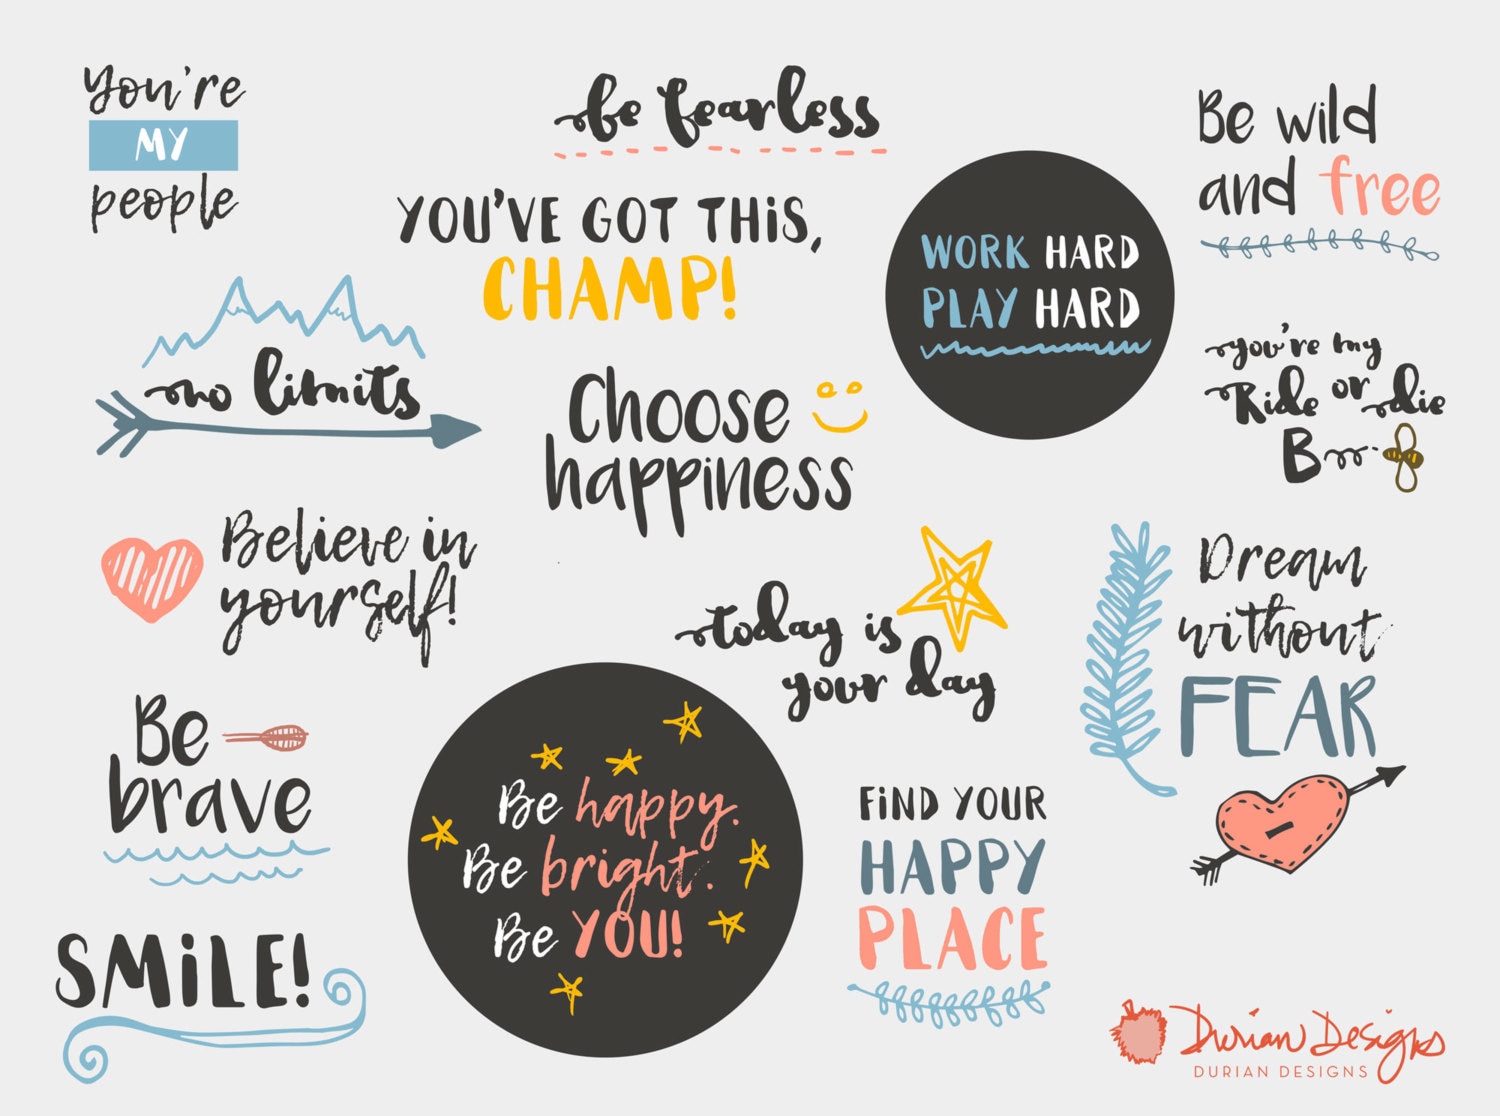 you're
MY
people
be fearless
YOU'VE GOT THiS,
CHAMP!
WORK HARD
PLAY HARD
Be wild
and free
no limits
Choose
happiness
you're my
Ride or die
B
Believe in
yourself!
today is
your day
Dream
without
FEAR
Be
brave
Be happy.
Be bright.
Be YOU!
FiND YOUR
HAPPY
PLACE
SMiLE!
Durian Designs
DURIAN DESIGNS